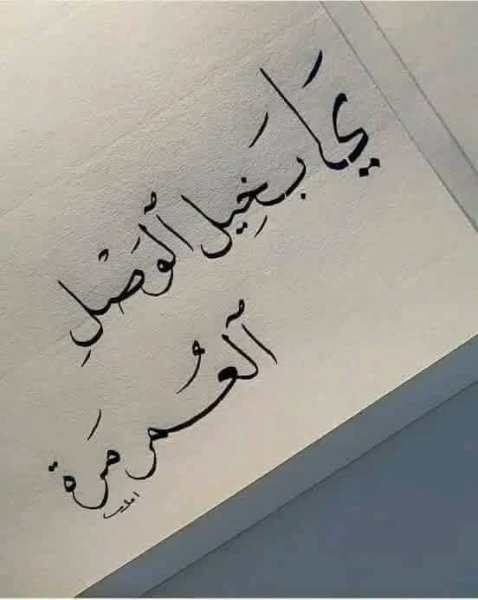 يَا بَخِيل ٱلوَصْلِ
ٱلعُمر مَرة